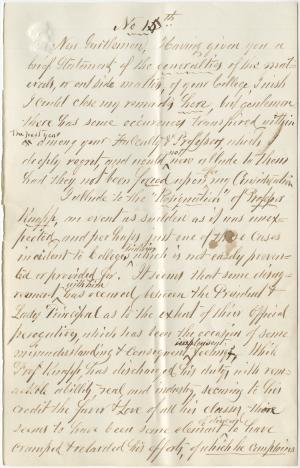 No 15th
Now Gentlemen, Having given you a
brief Statement of the generalties of the mat-
erals, or out side matters, of your College, I wish
I could close my remarks here, but gentlemen
there has some occurences transpired within
the past year
among your Faculty & Professors, which
deeply regret, and would now allude to them
had they not been forced upon my Consideration
I allude to the "Resignation" of Professor
Knapp, an event as sudden as it was inex-
pected, and perhaps just one of those Cases
incident to Colleges which is not easily preven-
ted or provided for. It seems that some disag-
rement has occured between the President &
Lady Principal as to the extent of their Official
perogatives, which has been the occasion of some
missunderstanding & consequent feeling, While
Prof Knapp has discharged his duty with rem-
arkable ability, zeal and industry, securing to his
credit the favor & Love of all his classes, there
seems to have been some element to have
cramped & retarded his efforts, of which he complains